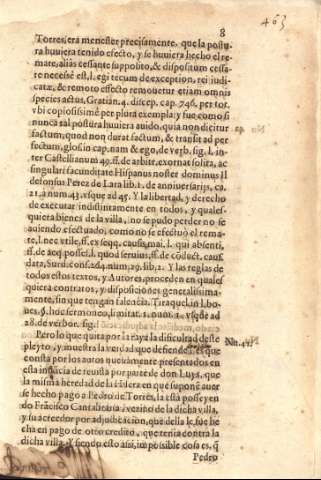 463
8
Torres, era menester precisamente, que la postu
ra huviera tenido efecto, y se huviera hecho el re
mate, aliàs cessante supposito, & dispositum cessa
re necesse est, l. egi tecum de exception. rei iudi
catæ, & remoto effectu remouetur etiam omnis
species actus, Gratian. 4. discep. cap. 746. per tot.
vbi copiosissimè per plura exempla: y fue como si
nunca tal postura huviera auido, quia non dicitur
factum, quod non durat factum, & transit ad per
fectum, glos. in cap. nam & ego, de verb. sig. l. in
ter Castellianum 49. ff. de arbitr. exornat solita, ac
singulari fæcunditate Hispanus noster dominus Il
defonsus Perez de Lara lib. 1. de anniuersarijs, ca.
21. à num. 43. vsque ad 45. Y la libertad, y derecho
de executar indistintamente en todos, y quales-
quiera bienes de la villa, no se pudo perder no se
auiendo efectuado, como no se efectuò el rema-
te, l. nec vtile, ff. ex seqq. causis, mai. l. qui absenti,
ff. de acq. posses. l. quod seruius, ff. de cōdict. caus.
data, Surd. cons. 404. num. 29. lib. 2. Y las reglas de
todos estos textos, y Autores, proceden en quales
quiera contratos, y disposiciones generalissima-
mente, sin que tengan falencia, Tiraquel. in l. bo-
ues. §. hoc sermone, limitat. 1. num. 1. vsque ad
28. de verbor. sig.
Pero lo que quita por la raya la dificultad deste
pleyto, y muestra la verdad que defiende, es que
consta por los autos nueuamente presentados en
esta instācia de reuista por parte de don Luys, que
la misma heredad de la
se hecho pago a Pedro de Torres, la està posseyen
do Frācisco Cantalitraria vezino de la dicha villa,
y su acreedor por adjudicacion, que della se fue he
cha en pago de otro credito, que tenia contra la
dicha villa. Y siendo esto assi, impossible cosa es, q̄
Pedro